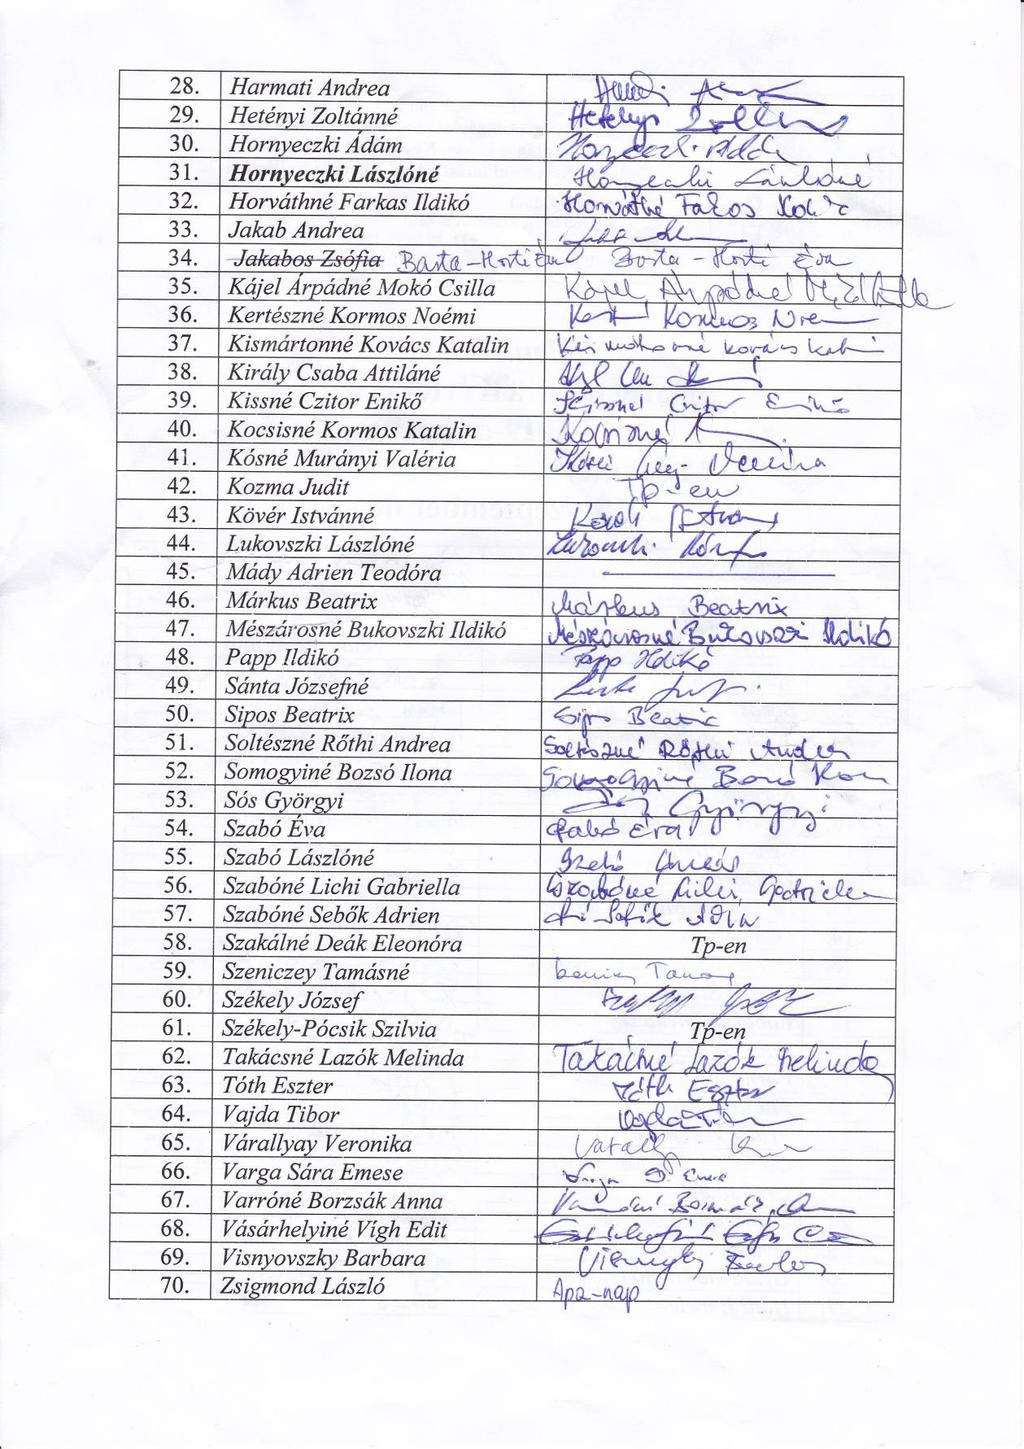 28. Harmati Andrea
29. Hetényi Zoltánné Hetényi Zoltánné
30. Hornyeczki Ádám Hornyeczki Ádám
31. Hornyeczki Lászlóné Hornyeczki Lászlóné
32. Horváthné Farkas Ildikó Horváthné Farkas Ildikó
33. Jakab Andrea
34. Jakabos Zsófia Barta-Horti Éva Barta-Horti Éva
35. Kájel Árpádné Mokó Csilla Kájel Árpádné
36. Kertészné Kormos Noémi Kormos
37. Kismártonné Kovács Katalin Kismártonné Kovács
38. Király Csaba Attiláné
39. Kissné Czitor Enikő Kissné Czitor Enikő
40. Kocsisné Kormos Katalin Kocsisné
41. Kósné Murányi Valéria
42. Kozma Judit Tp-en
43. Kövér Istvánné
44. Lukovszki Lászlóné
45. Mády Adrien Teodóra
46. Márkus Beatrix Márkus Beatrix
47. Mészárosné Bukovszki Ildikó Mészárosné Bukovszki Ildikó
48. Papp Ildikó Papp Ildikó
49. Sánta Józsefné
50. Sipos Beatrix Sipos Beatrix
51. Soltészné Rőthi Andrea Soltészné Rőthi Andrea
52. Somogyiné Bozsó Ilona Somogyiné Bozsó Ilona
53. Sós Györgyi Györgyi
54. Szabó Éva Szabó Éva
55. Szabó Lászlóné Szabó
56. Szabóné Lichi Gabriella Szabóné Lichi Gabriella
57. Szabóné Sebők Adrien
58. Szakálné Deák Eleonóra Tp-en
59. Szeniczey Tamásné
60. Székely József
61. Székely-Pócsik Szilvia Tp-en
62. Takácsné Lazók Melinda Takácsné Lazók Melinda
63. Tóth Eszter Tóth Eszter
64. Vajda Tibor
65. Várallyay Veronika
66. Varga Sára Emese
67. Varróné Borzsák Anna
68. Vásárhelyiné Vígh Edit
69. Visnyovszky Barbara
70. Zsigmond László Apa-nap